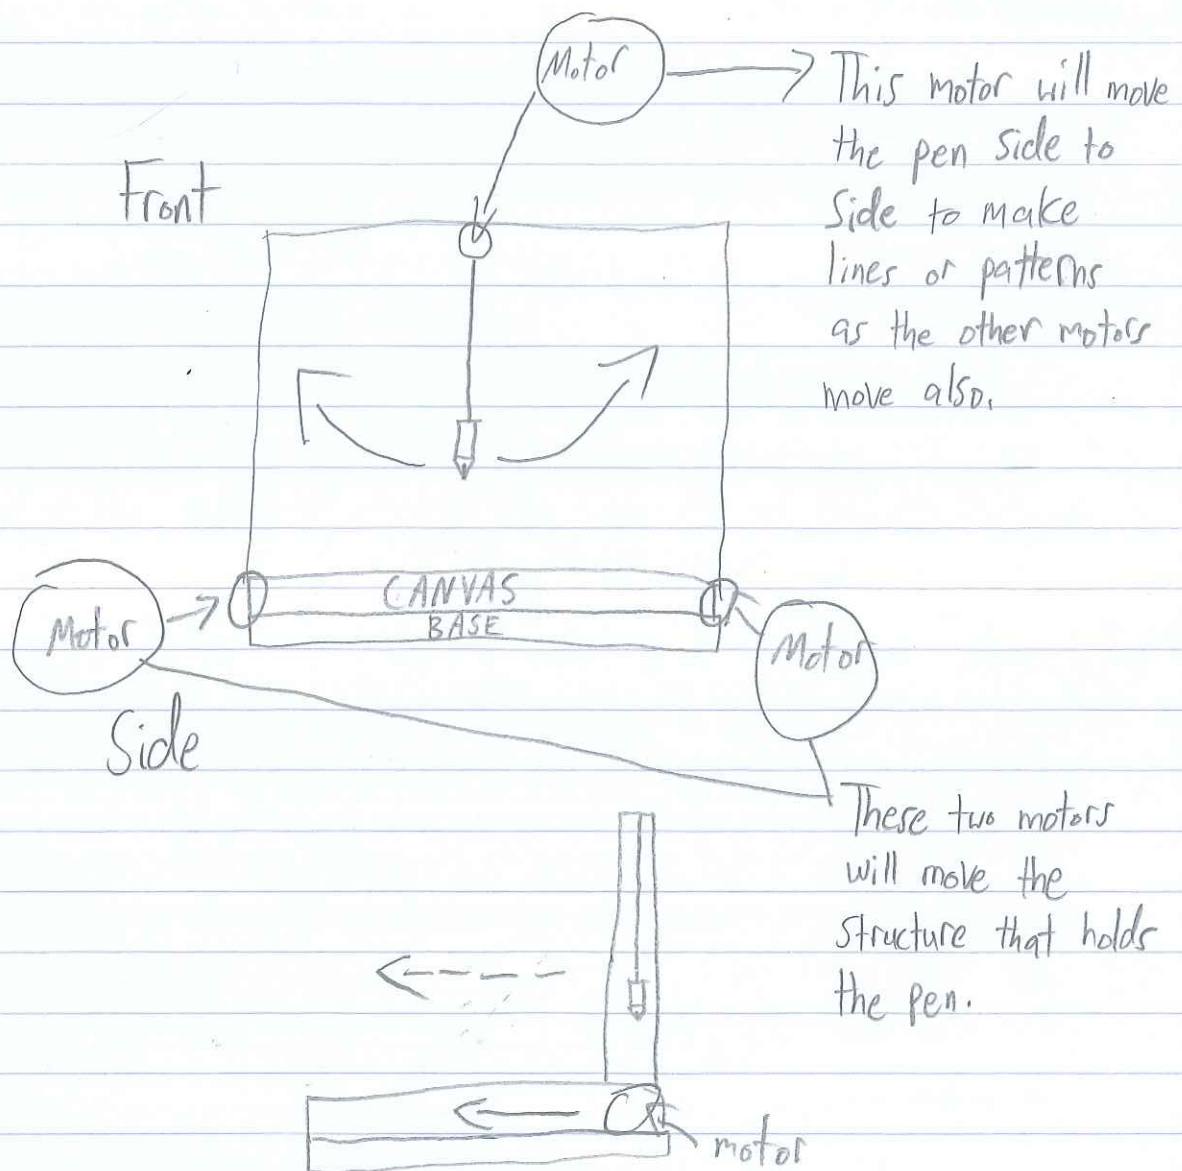 Motor
This motor will move
the pen side to
side to make
lines or patterns
as the other motors
move also.
Front
CANVAS
BASE
Motor
Motor
Side
These two motors
will move the
structure that holds
the pen.
motor